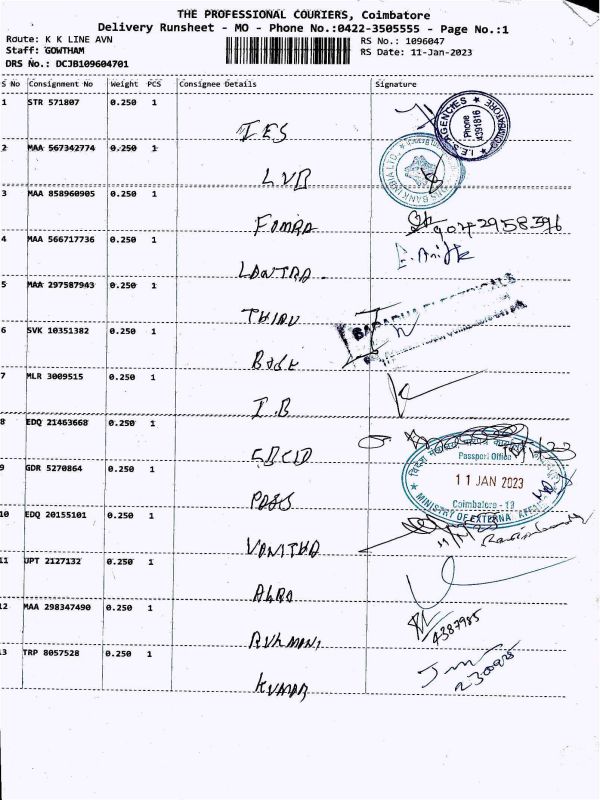 THE PROFESSIONAL COURIERS, Coimbatore
Delivery Runsheet - MO - Phone No.:0422-3505555 - Page No.:1
Route: K K LINE AVN
RS No.: 1096047
Staff: GOWTHAM
RS Date: 11-Jan-2023
DRS No.: DCJB109604701
S No Consignment No Weight PCS Consignee Details Signature
1 STR 571807 0.250 1
IES
I.E.S AGENCIES ★ COIMBATORE ★
Phone
4391816
2 MAA 567342774 0.250 1
LVB
BANK INDIA LTD.
3 MAA 858960905 0.250 1
FOMRA
9042958376
4 MAA 566717736 0.250 1
E. Anitha
5 MAA 297587943 0.250 1
THIRU
6 SVK 10351382 0.250 1
7 MLR 3009515 0.250 1
I.B
8 EDQ 21463668 0.250 1
Passport Office
9 GDR 5270864 0.250 1
11 JAN 2023
PASS
Coimbatore - 19
MINISTRY OF EXTERNAL AFFAIRS
10 EDQ 20155101 0.250 1
VANITHA
11/1/23
11 UPT 2127132 0.250 1
12 MAA 298347490 0.250 1
RUKMANI
4387985
13 TRP 8057528 0.250 1
KUMAR